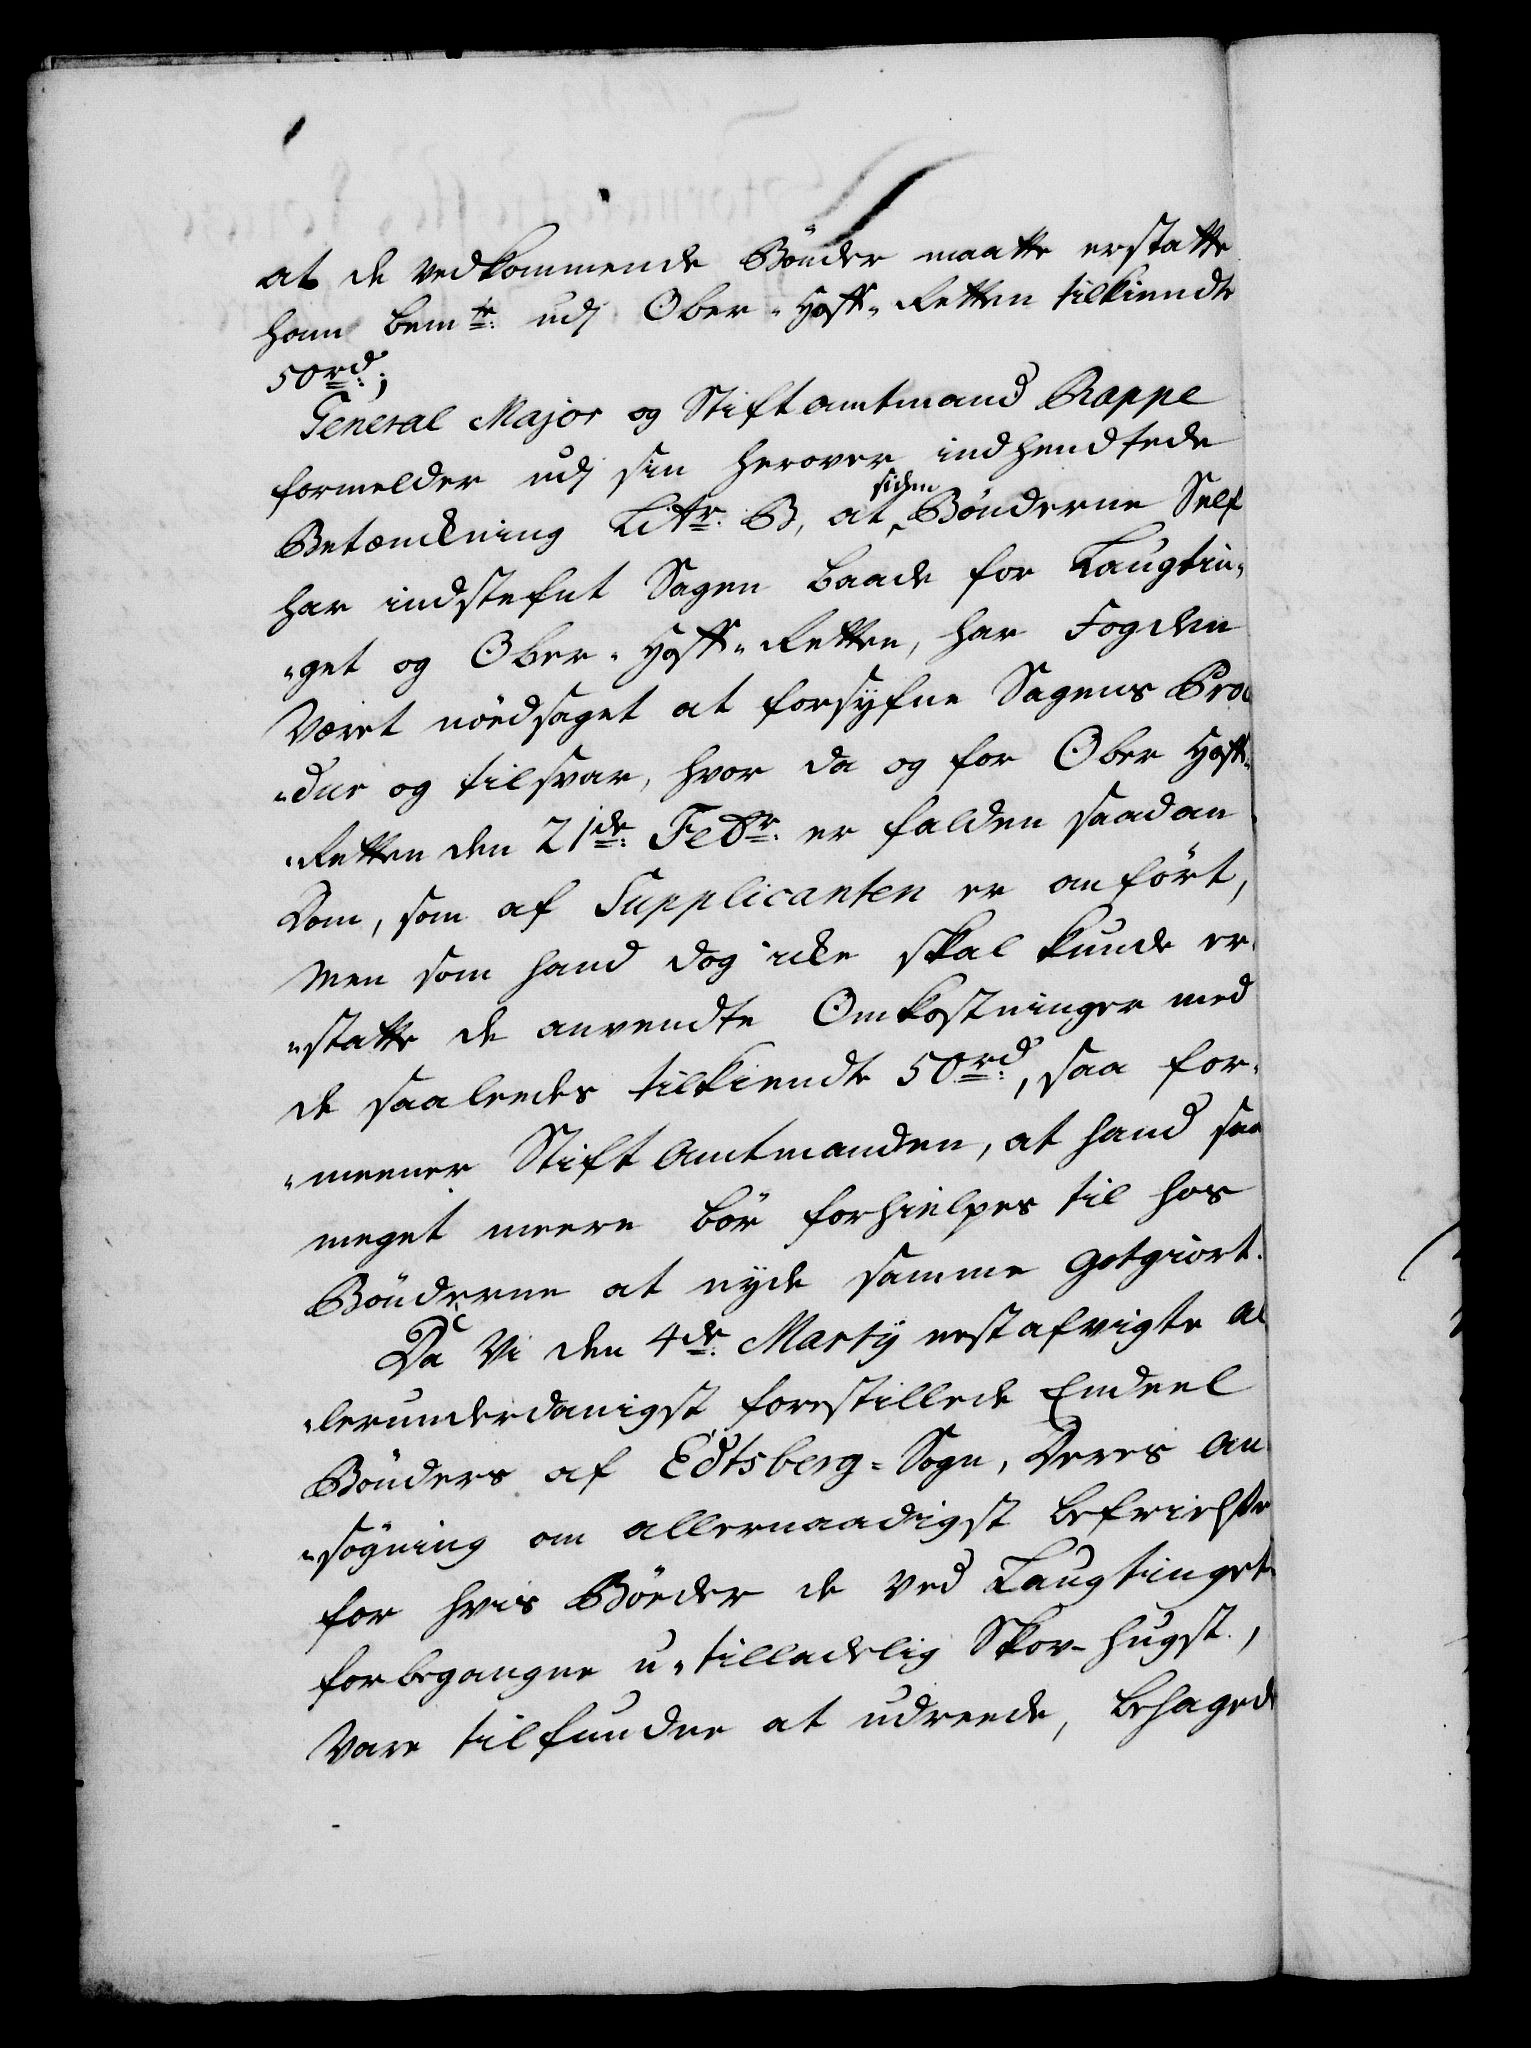 at de vedkommende Bönder maatte erstatte
ham bemte: udj Ober-Hoff-Retten tilkiendte
50rd:;
General Major og Stiftamtmand Rappe
formelder udj sin herover indhendtede
Betænckning Litr: B, at siden Bönderne Self
har indstefnt Sagen baade for Laugtin-
-get og Ober-Hoff-Retten, har Fogden
Været nödsaget at forsyfne Sagens Proce
-dur og tilsvar, hvor da og for Ober Hoff-
-Retten den 21de: Febr: er falden saadan
Dom, som af Supplicanten er anfört,
Men som hand dog icke skal kunde er-
-statte de anvendte Omkostninger med
de saaleedes tilkiendte 50rd:, saa for-
-meener Stift Amtmanden, at hand saa
meget meere bör forhielpes til hos
Bönderne at nyde samme gotgiort.
Da Vi den 4de: Martij nestafvigte al
-lerunderdanigst forestillede Endeel
Bönders af Edtsberg-Sogn, Deres An
-sögning om allernaadigst befrielse
for hvis Böder de ved Laugtinget
for begangne u-tilladelig Skov-hugst,
Vare tilfunden at udreede, behagede